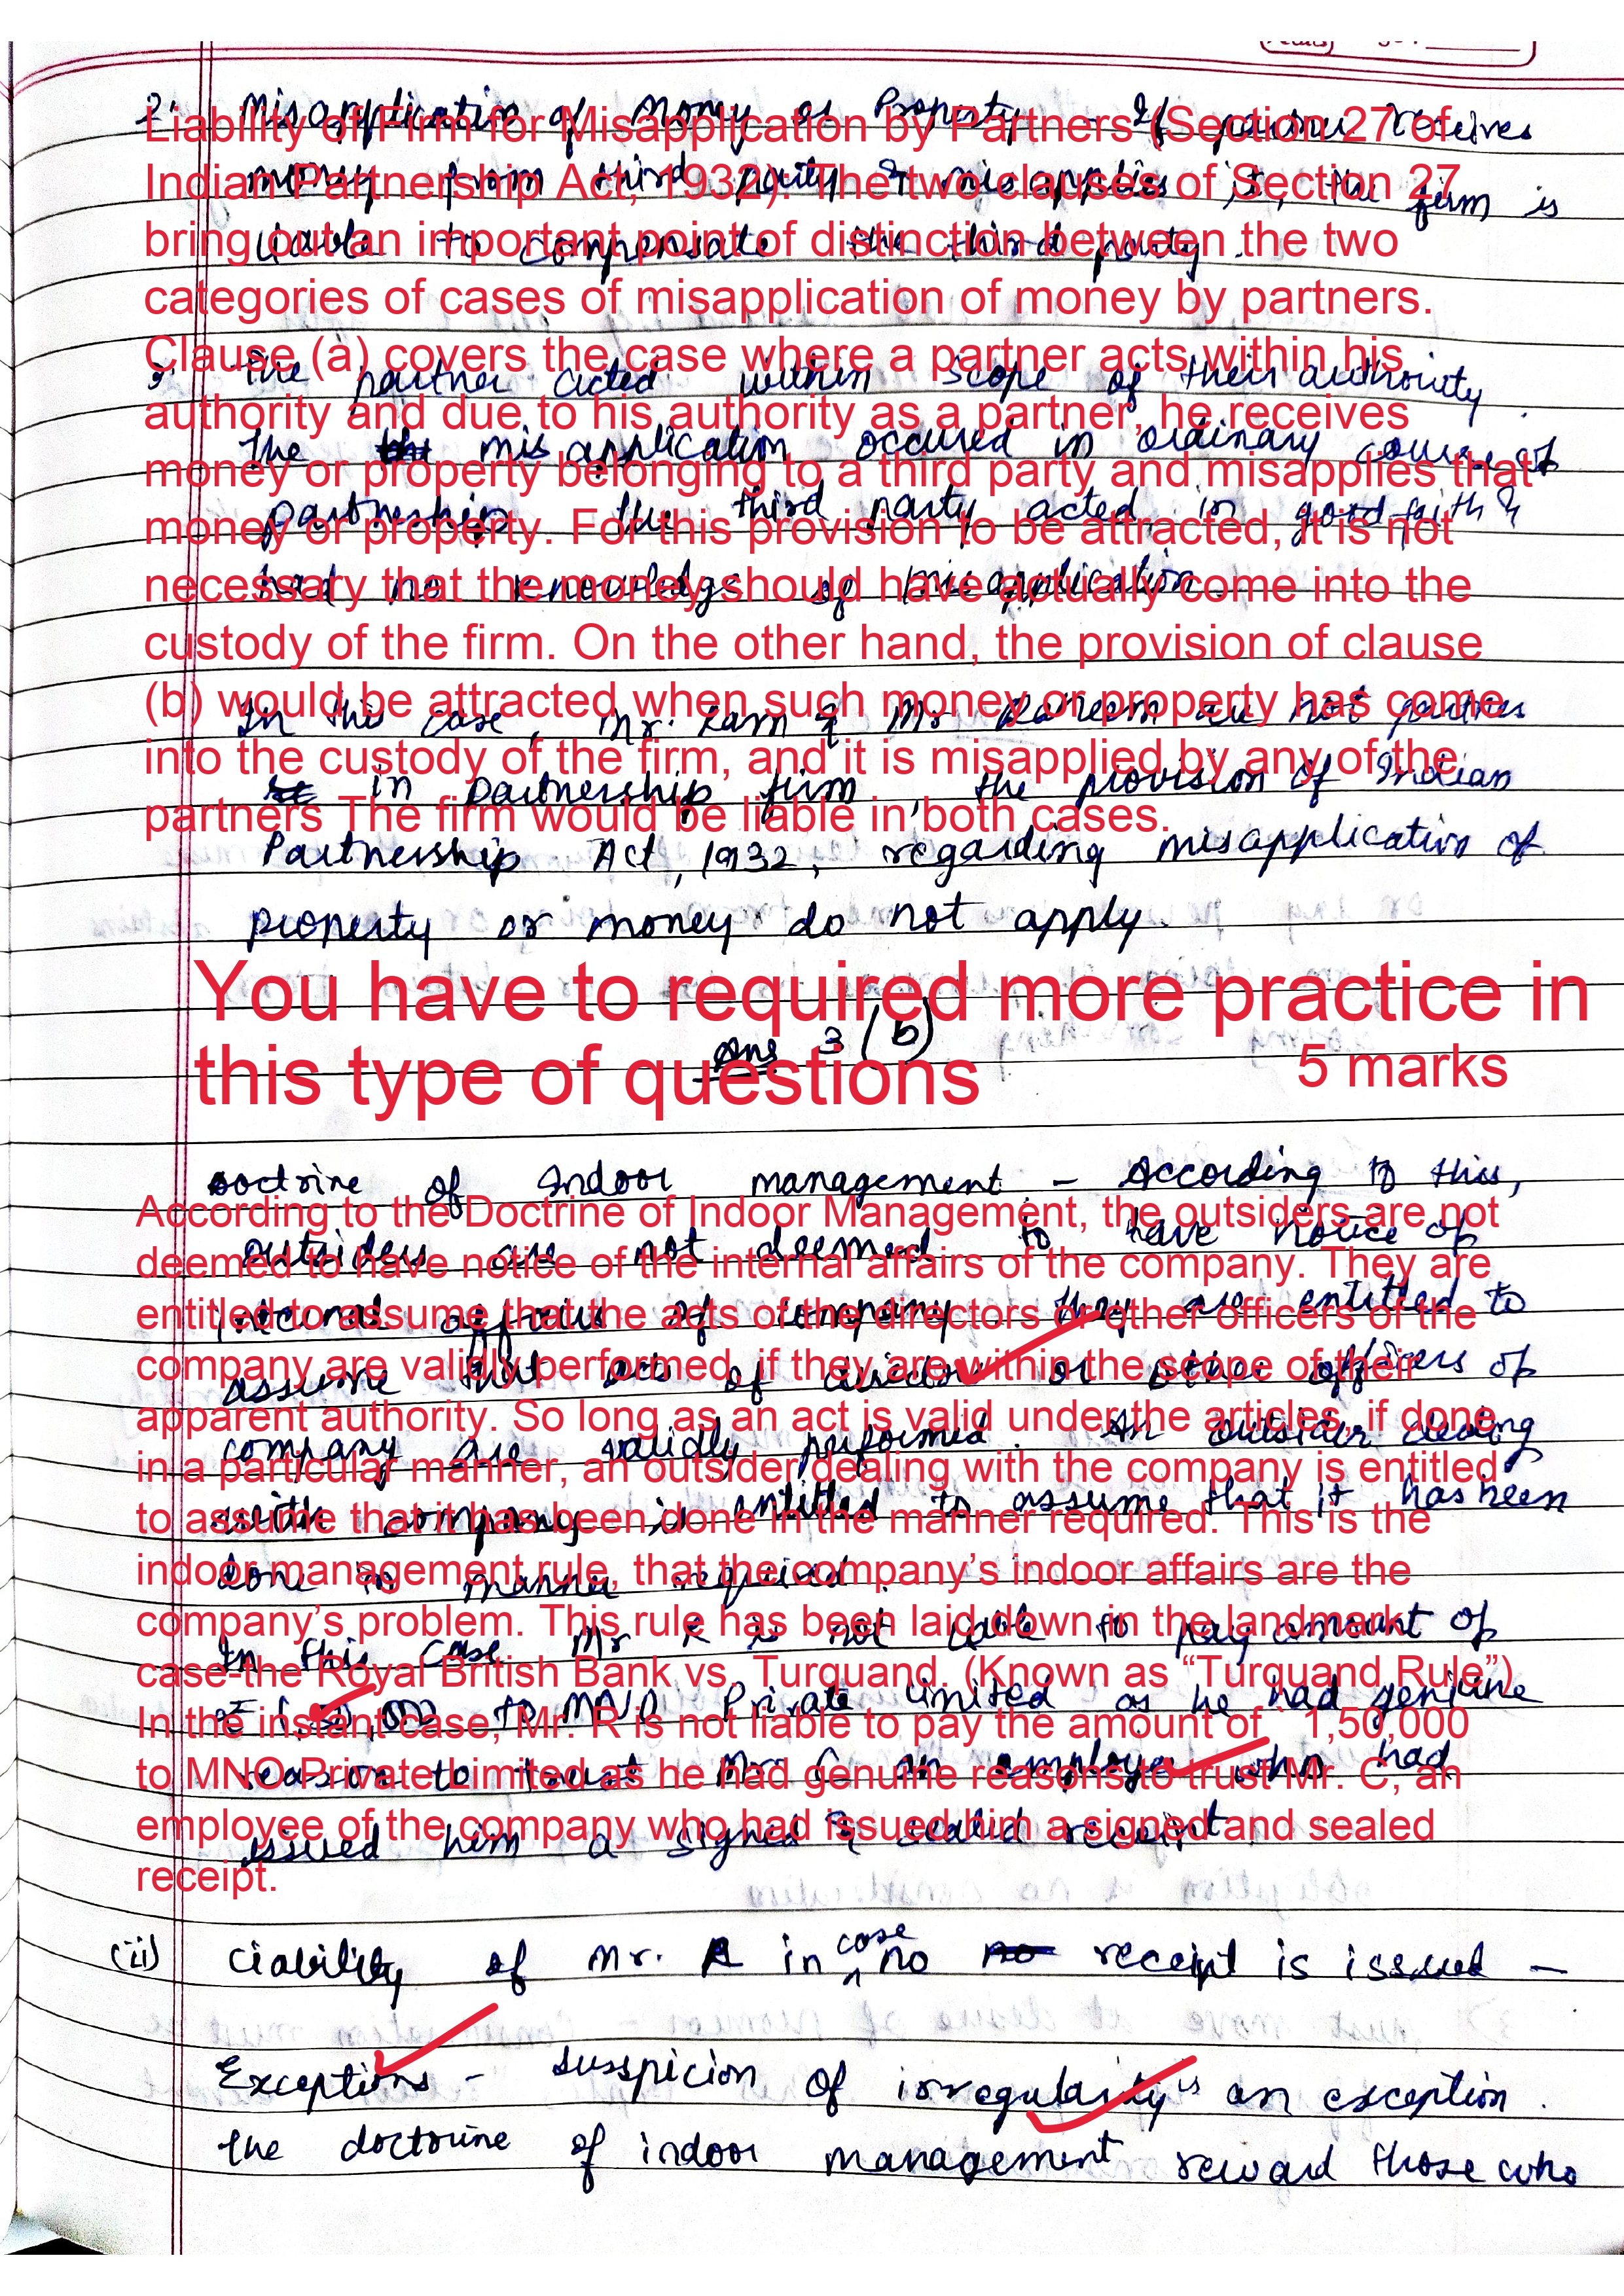 2. Misapplication of Money or Property - If partner receives
money from third party & misapplies it, the firm is
liable to compensate the third party.
Liability of Firm for Misapplication by Partners (Section 27 of
Indian Partnership Act, 1932): The two clauses of Section 27
bring out an important point of distinction between the two
categories of cases of misapplication of money by partners.
Clause (a) covers the case where a partner acts within his
authority and due to his authority as a partner, he receives
money or property belonging to a third party and misapplies that
money or property. For this provision to be attracted, it is not
necessary that the money should have actually come into the
custody of the firm. On the other hand, the provision of clause
(b) would be attracted when such money or property has come
into the custody of the firm, and it is misapplied by any of the
partners The firm would be liable in both cases.
The partner acted within scope of their authority.
The misapplication occured in ordinary course of
partnership. The third party acted in good faith &
had no knowledge of misapplication.
In this case, Mr. Ram & Mr Raheem are not partner
in partnership firm, the provision of Indian
Partnership Act, 1932, regarding misapplication of
property or money do not apply.
You have to required more practice in
this type of questions
5 marks
Ans 3 (b)
Doctrine of Indoor management - According to this,
outsiders are not deemed to have notice of
internal affairs of company. They are entitled to
assume that acts of director or other officers of
company are validly performed. An outsider dealing
with company is entitled to assume that it has been
done in manner required.
In this case Mr R is not liable to pay amount of
₹ 1,50,000 to MNO Private limited as he had genuine
reason to trust Mr C an employe who had
issued him a signed & sealed receipt.
According to the Doctrine of Indoor Management, the outsiders are not
deemed to have notice of the internal affairs of the company. They are
entitled to assume that the acts of the directors or other officers of the
company are validly performed, if they are within the scope of their
apparent authority. So long as an act is valid under the articles, if done
in a particular manner, an outsider dealing with the company is entitled
to assume that it has been done in the manner required. This is the
indoor management rule, that the company’s indoor affairs are the
company’s problem. This rule has been laid down in the landmark
case-the Royal British Bank vs. Turquand. (Known as “Turquand Rule”)
In the instant case, Mr. R is not liable to pay the amount of ` 1,50,000
to MNO Private Limited as he had genuine reasons to trust Mr. C, an
employee of the company who had issued him a signed and sealed
receipt.
(ii) Liability of Mr. R in case no receipt is issued -
Exceptions - Suspicion of irregularity is an exception.
The doctrine of indoor management reward those who